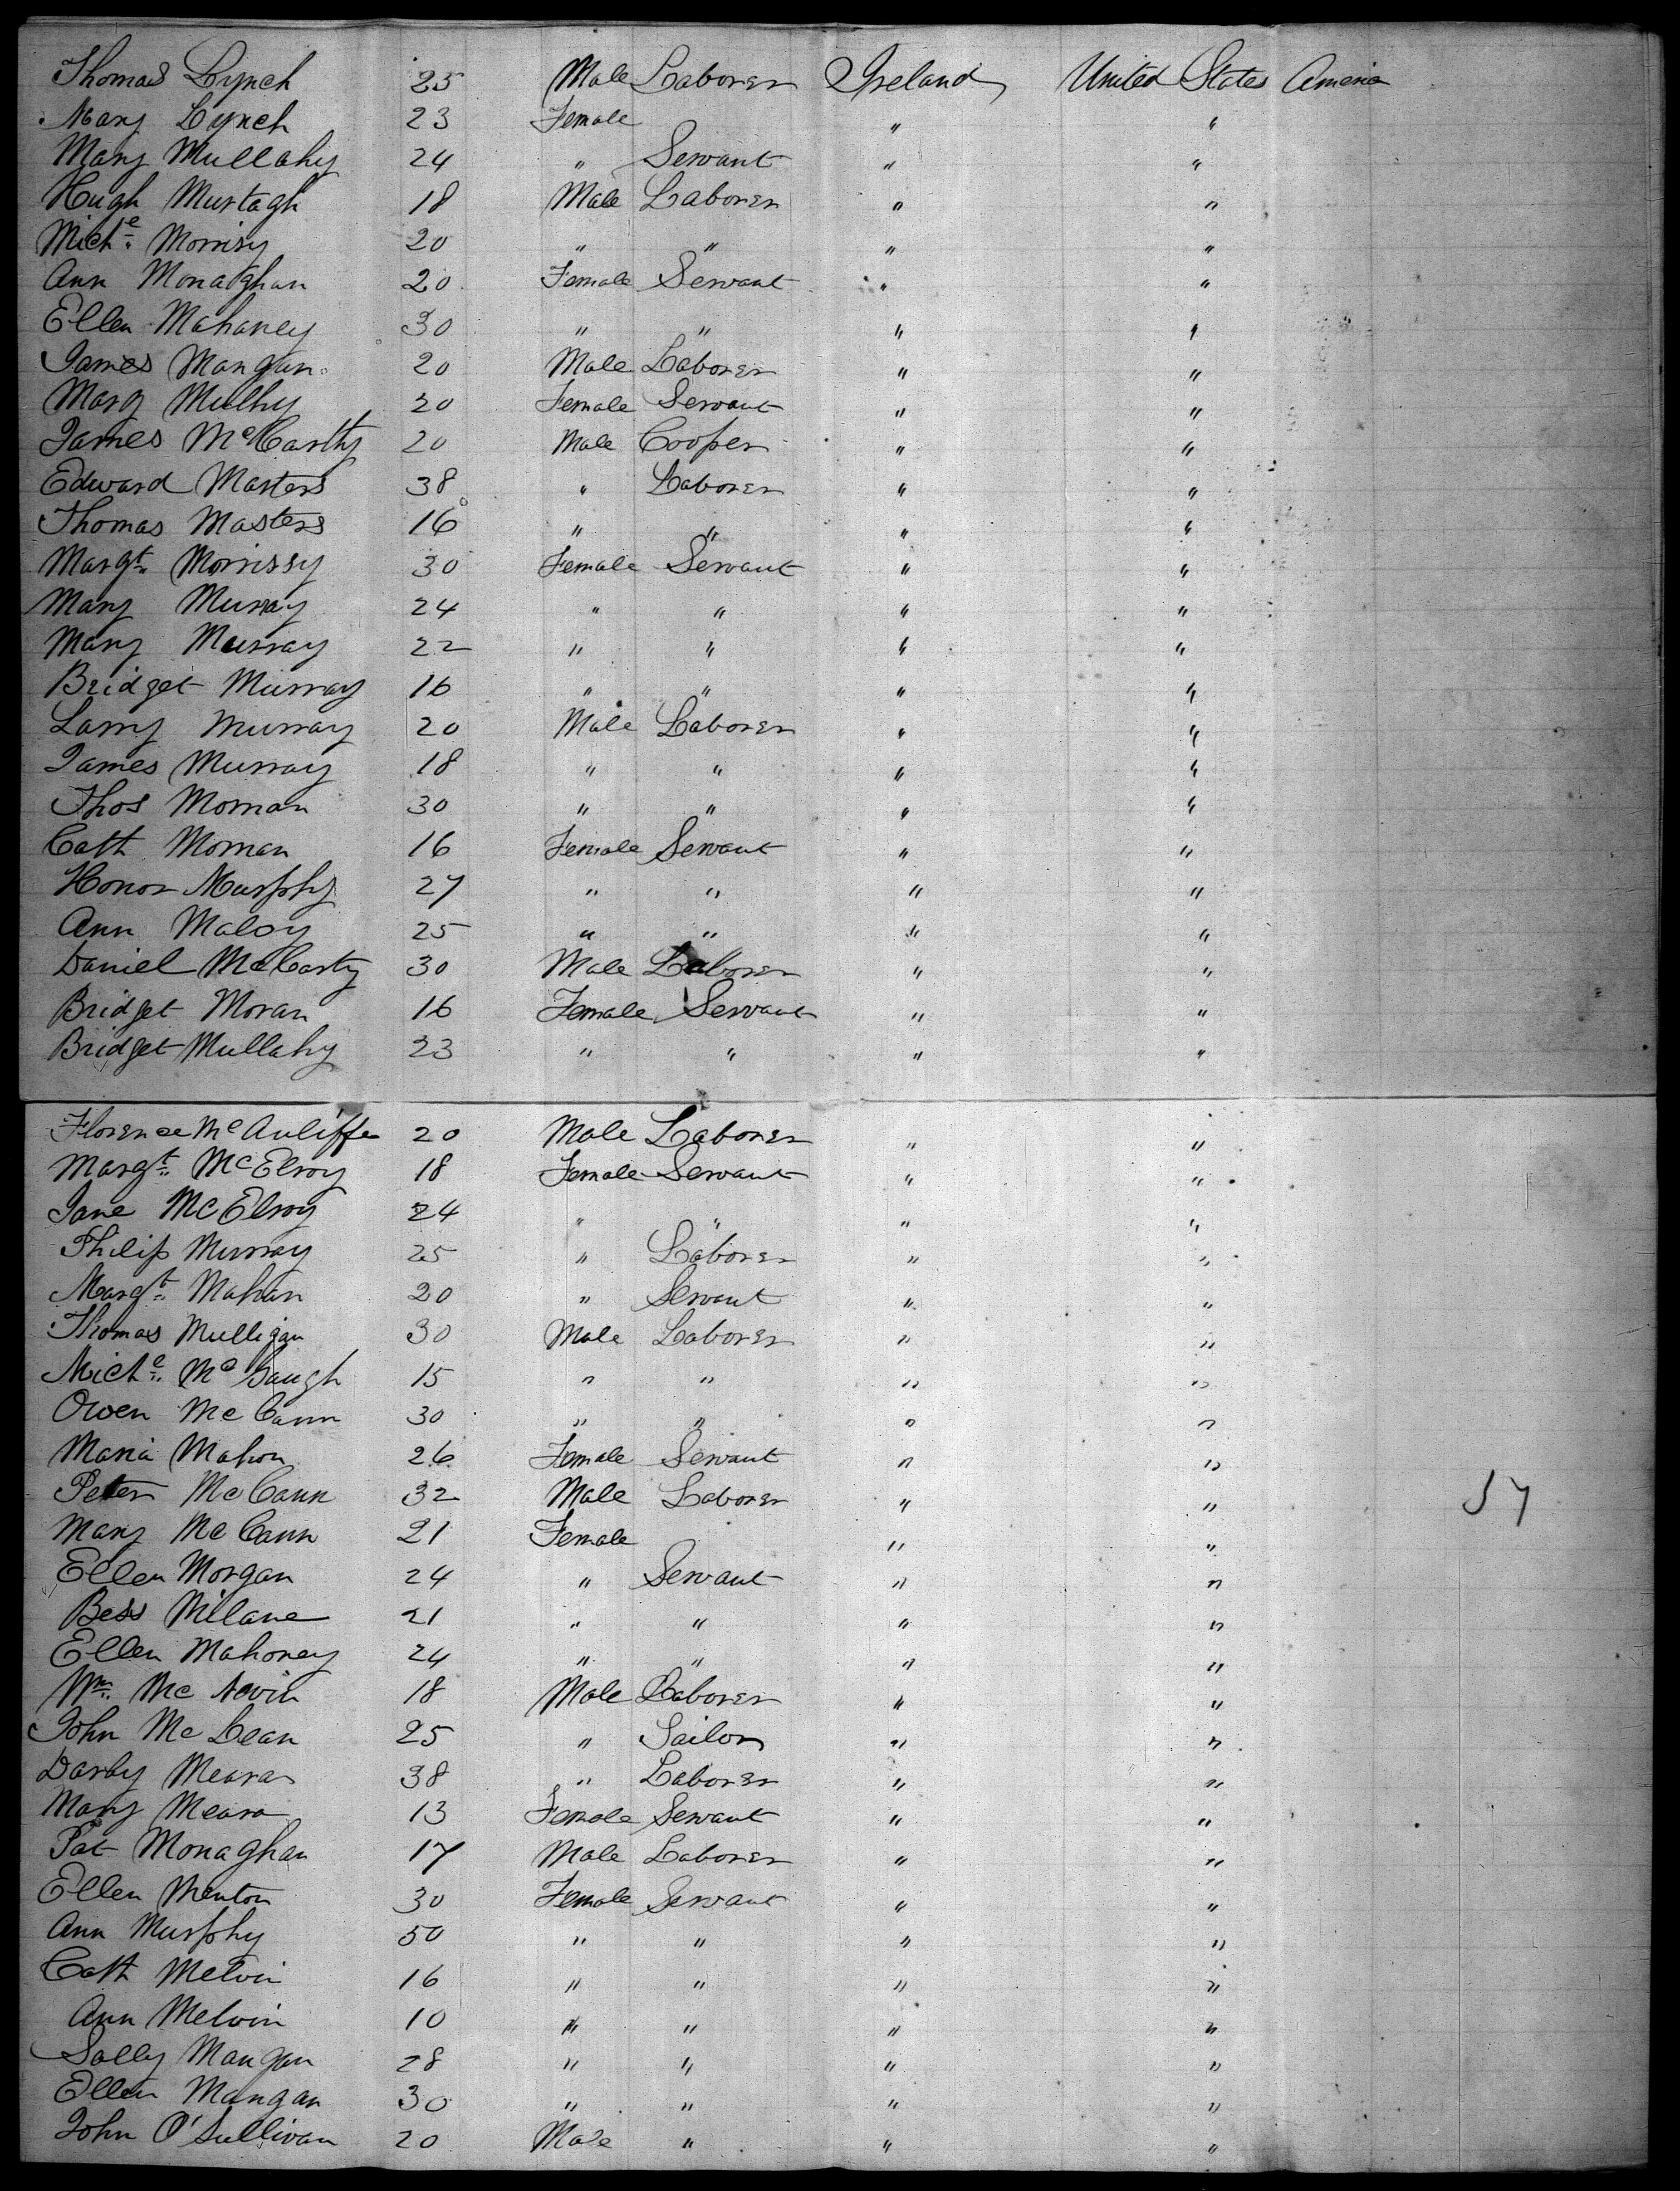 Thomas Lynch 25 Male Laborer Ireland United States America
Mary Lynch 23 Female " "
Mary Mullahy 24 " Servant " "
Hugh Murtagh 18 Male Laborer " "
Miche Morrisy 20 " " " "
Ann Monaghan 20 Female Servant " "
Ellen Mahaney 30 " " " "
James Mangan 20 Male Laborer " "
Mary Mulhy 20 Female Servant " "
James McCarthy 20 Male Cooper " "
Edward Masters 38 " Laborer " "
Thomas Masters 16 " " " "
Margt Morrissy 30 Female Servant " "
Mary Murray 24 " " " "
Mary Murray 22 " " " "
Bridget Murray 16 " " " "
Larry Murray 20 Male Laborer " "
James Murray 18 " " " "
Thos Mornan 30 " " " "
Cath Mornan 16 Female Servant " "
Honor Murphy 27 " " " "
Ann Maloy 25 " " " "
Daniel McCarty 30 Male Laborer " "
Bridget Moran 16 Female Servant " "
Bridget Mullahy 23 " " " "
Florence McAuliffe 20 Male Laborer " "
Margt McElroy 18 Female Servant " "
Jane McElroy 24 " " " "
Philip Murray 25 " Laborer " "
Margt Mahan 20 " Servant " "
Thomas Mulligan 30 Male Laborer " "
Miche 15 " " " "
Owen McCann 30 " " " "
Maria Mahon 26 Female Servant " "
Peter McCann 32 Male Laborer " "
Mary McCann 21 Female " "
Ellen Morgan 24 " Servant " "
Bess Milane 21 " " " "
Ellen Mahoney 24 " " " "
Wm McNevin 18 Male Laborer " "
John McLean 25 " Sailor " "
Darby Meara 38 " Laborer " "
Mary Meara 13 Female Servant " "
Pat Monaghan 17 Male Laborer " "
Ellen Menton 30 Female Servant " "
Ann Murphy 50 " " " "
Cath Melvin 16 " " " "
Ann Melvin 10 " " " "
Sally Mangan 28 " " " "
Ellen Mangan 30 " " " "
John O'Sullivan 20 Male " " "